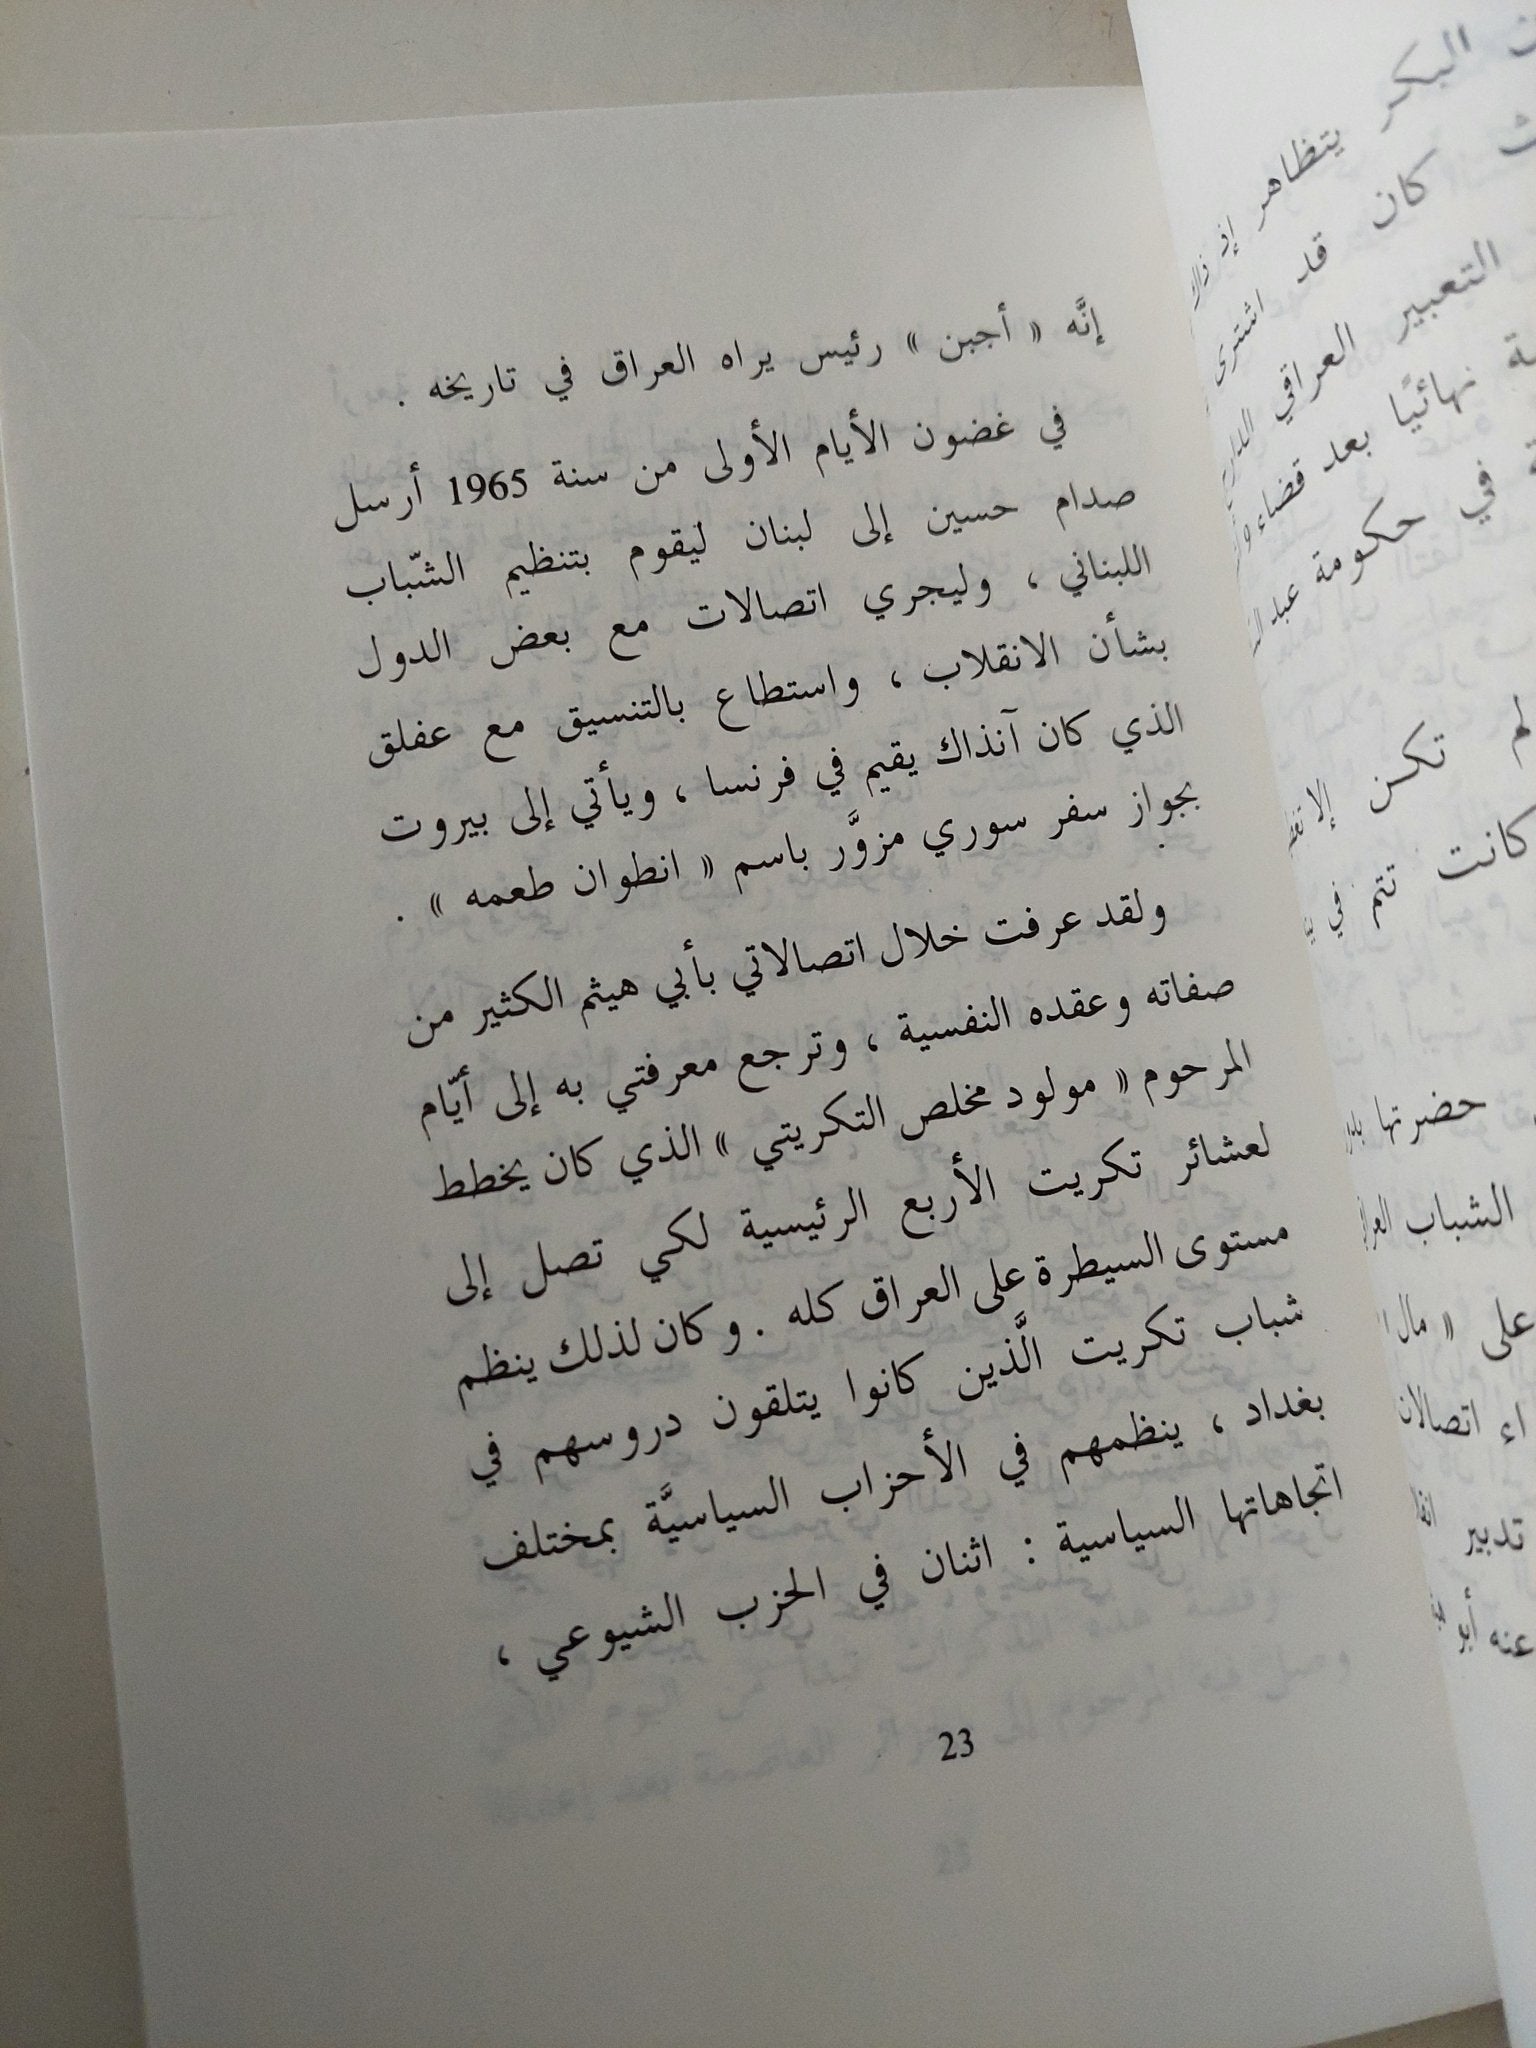 إنَّه « أجبن » رئيس يراه العراق في تاريخه .
في غضون الأيام الأولى من سنة 1965 أرسل
صدام حسين إلى لبنان ليقوم بتنظيم الشّباب
اللبناني ، وليجري اتصالات مع بعض الدول
بشأن الانقلاب ، واستطاع بالتنسيق مع عفلق
الذي كان آنذاك يقيم في فرنسا ، ويأتي إلى بيروت
بجواز سفر سوري مزوَّر باسم « انطوان طعمه » .
ولقد عرفت خلال اتصالاتي بأبي هيثم الكثير من
صفاته وعقده النفسية ، وترجع معرفتي به إلى أيّام
المرحوم « مولود مخلص التكريتي » الذي كان يخطط
لعشائر تكريت الأربع الرئيسية لكي تصل إلى
مستوى السيطرة على العراق كله . وكان لذلك ينظم
شباب تكريت الَّذين كانوا يتلقون دروسهم في
بغداد ، ينظمهم في الأحزاب السياسيَّة بمختلف
اتجاهاتها السياسية : اثنان في الحزب الشيوعي ،
23
البكر يتظاهر إذ ذاك
كان قد اشترى
التعبير العراقي
نهائيًا بعد قضاء
في حكومة عبد
لم تكن إلا
كانت تتم في
حضرتها
الشباب
على « مال
اتصالات
تدبير
عنه أبو